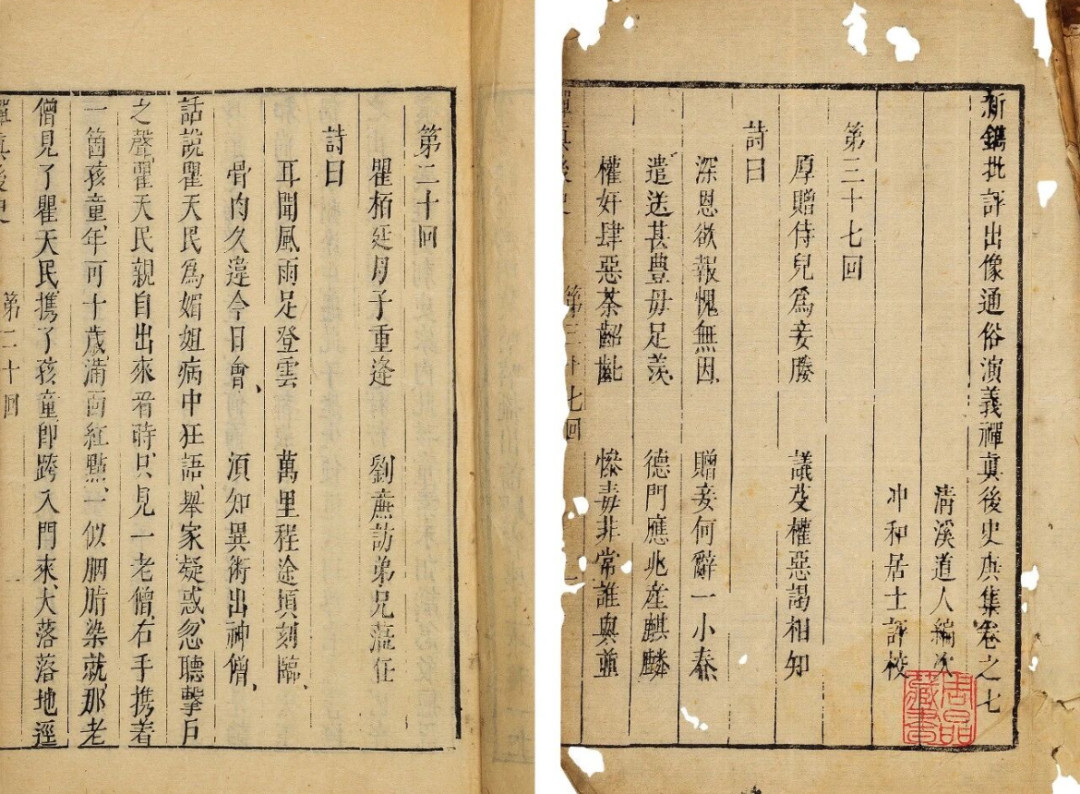 新鐫批評出像通俗演義禪真後史庚集卷之七
清溪道人編次
冲和居士評校
藏書
第三十七回
厚贈侍兒爲妾媵 議芟權惡謁相知
詩曰
深恩欲報愧無因 贈妾何辭一小秦
遣送甚豊毋足羨 德門應兆産麒麟
權奸肆惡荼齠齔 慘毒非常誰與並
禪真後史 第三十七回 一
第二十回
瞿栢廷母子重逢 劉廉訪弟兄蒞任
詩曰
耳聞風雨足登雲 萬里程途頃刻臨、
骨肉久違今日會、 須知異術出神僧、
話說瞿天民爲媚姐病中狂語、舉家疑惑、忽聽擊戶
之聲、瞿天民親自出來看時、只見一老僧、右手携着
一箇孩童、年可十歲、滿面紅點、一似胭脂染就、那老
僧見了瞿天民、携了孩童、即跨入門來、大落落地逕
禪真後史 第二十回 一